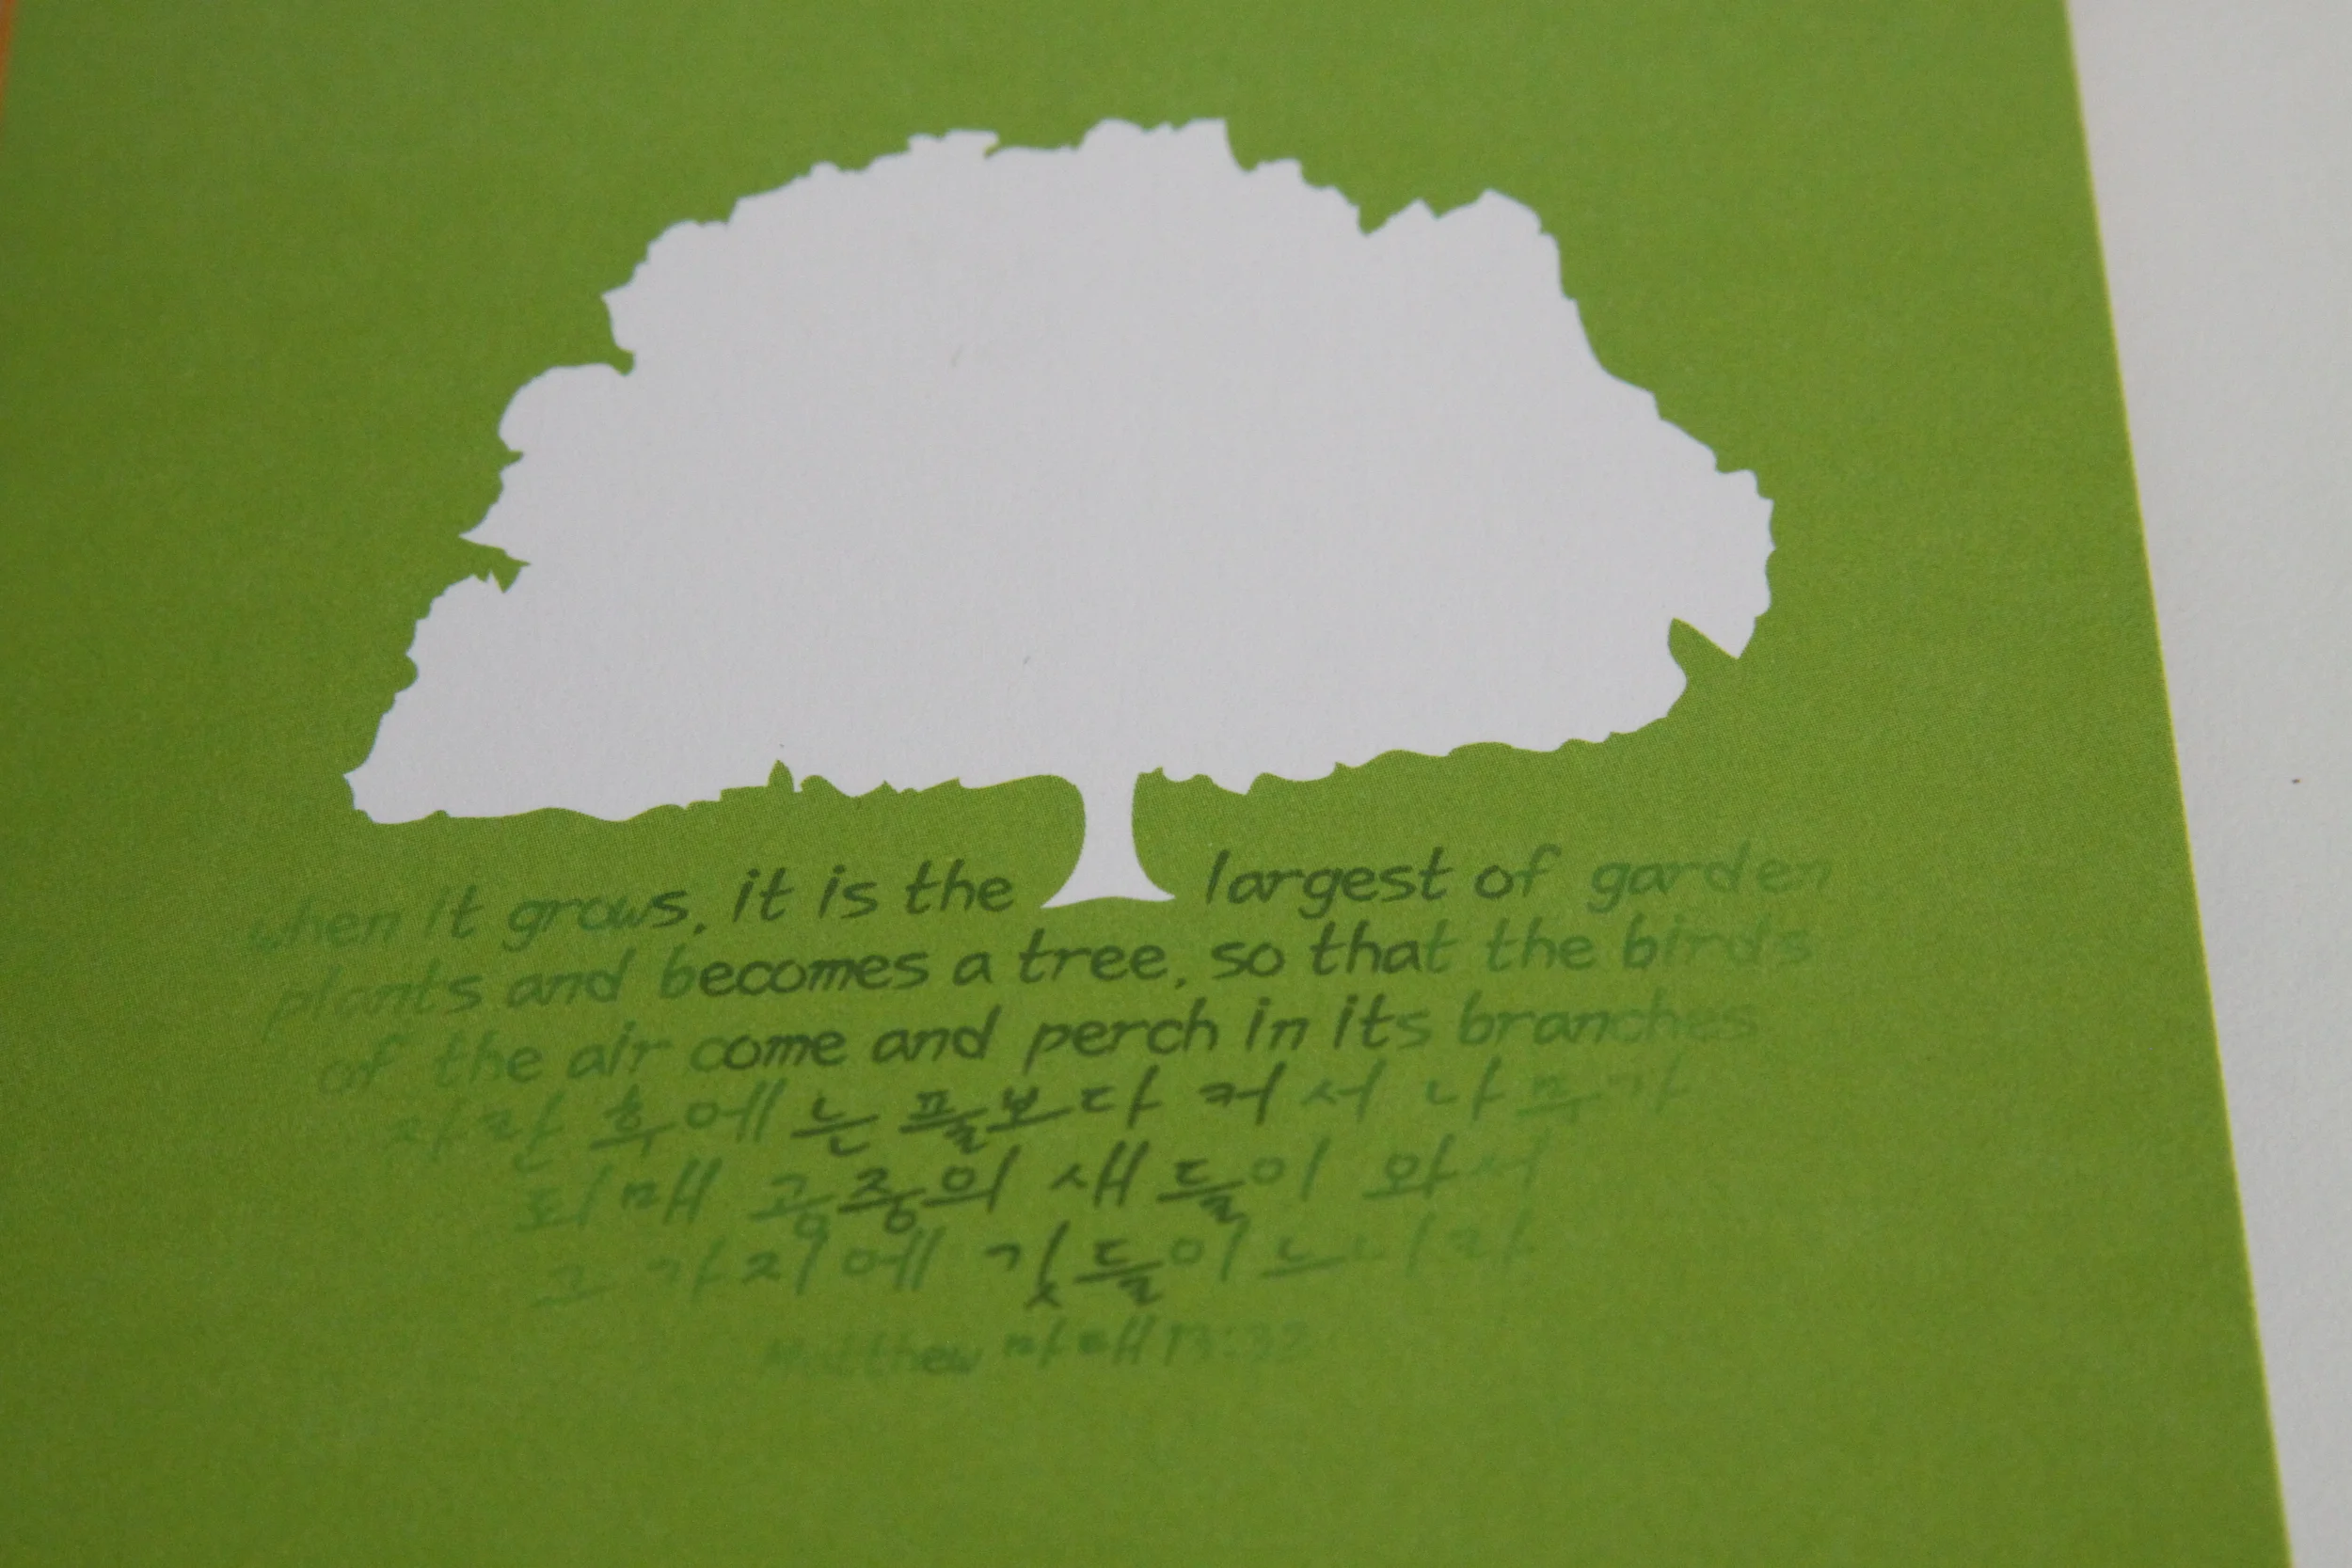 when it grows, it is the largest of garden
plants and becomes a tree, so that the birds
of the air come and perch in its branches
자란 후에는 풀보다 커서 나무가
되매 공중의 새들이 와서
그 가지에 깃들이느니라
Matthew 마태 13:32